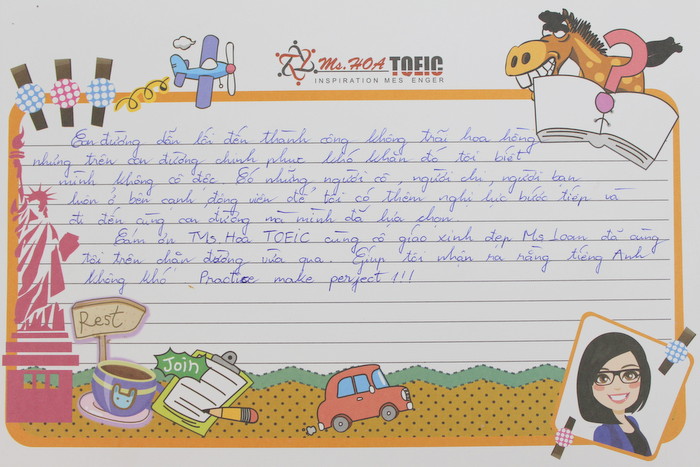 Ms. HOA TOEIC
INSPIRATION MES ENGER
?
Con đường dẫn lối đến thành công không trãi hoa hồng
nhưng trên con đường chinh phục khó khăn đó tôi biết
mình không cô độc. Có những người cô, người chị, người bạn
luôn ở bên cạnh, động viên để tôi có thêm nghị lực bước tiếp và
đi đến cùng con đường mà mình đã lựa chọn.
Cám ơn Ms. Hoa TOEIC cùng cô giáo xinh đẹp Ms Loan đã cùng
tôi trên chặn đường vừa qua. Giúp tôi nhận ra rằng tiếng Anh
không khó. Practice make perject!!!
Rest
Join